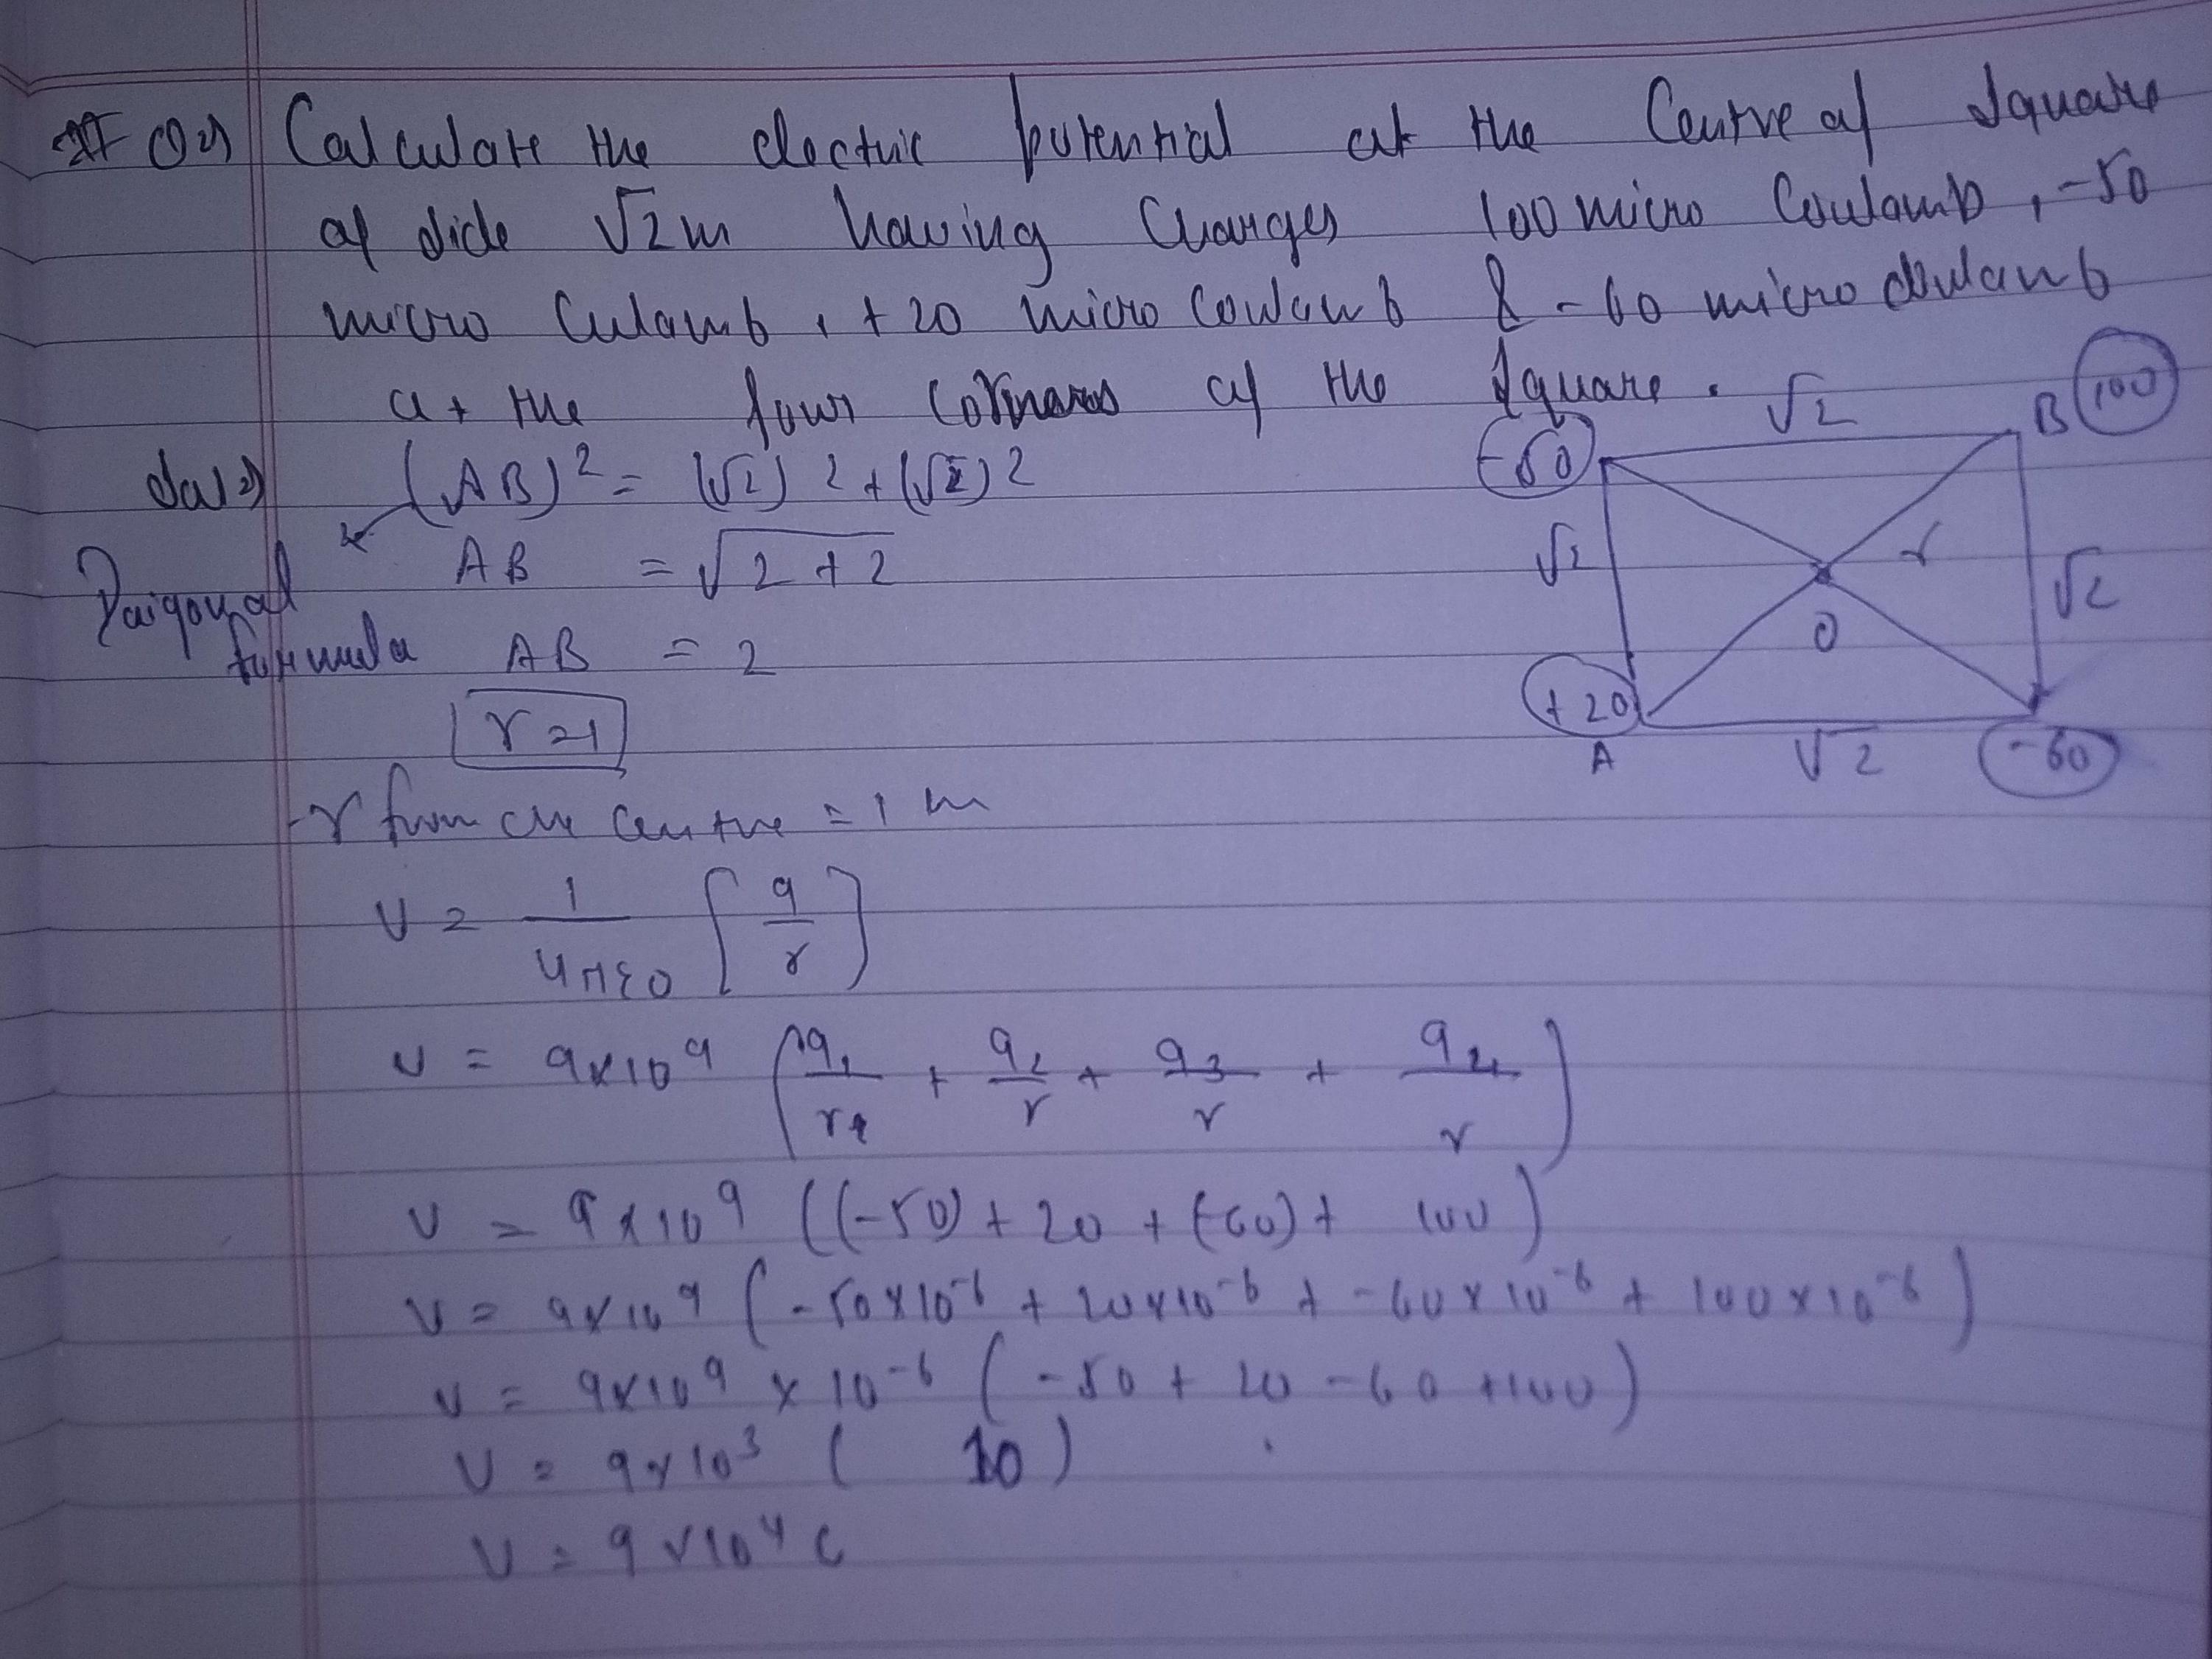 Q2) Calculate the electric potential at the Centre of square
of side √2m having Charges 100 micro Coulamb, -50
micro Culamb, +20 micro Coulamb & -60 micro Coulamb
at the four Cornares of the square.
Sol) (AB)² = (√2)² + (√2)²
Daigonal
formula
AB = √2+2
AB = 2
r=1
r from the Centre = 1 m
V = 1/4πε0 [q/r]
V = 9×10⁹ (q1/r + q2/r + q3/r + q4/r)
V = 9×10⁹ ((-50) + 20 + (-60) + 100)
V = 9×10⁹ (-50×10⁻⁶ + 20×10⁻⁶ + -60×10⁻⁶ + 100×10⁻⁶)
V = 9×10⁹ × 10⁻⁶ (-50 + 20 - 60 +100)
V = 9×10³ (10)
V = 9×10⁴ C
-50
√2
B
100
√2
r
√2
O
+20
A
√2
-60